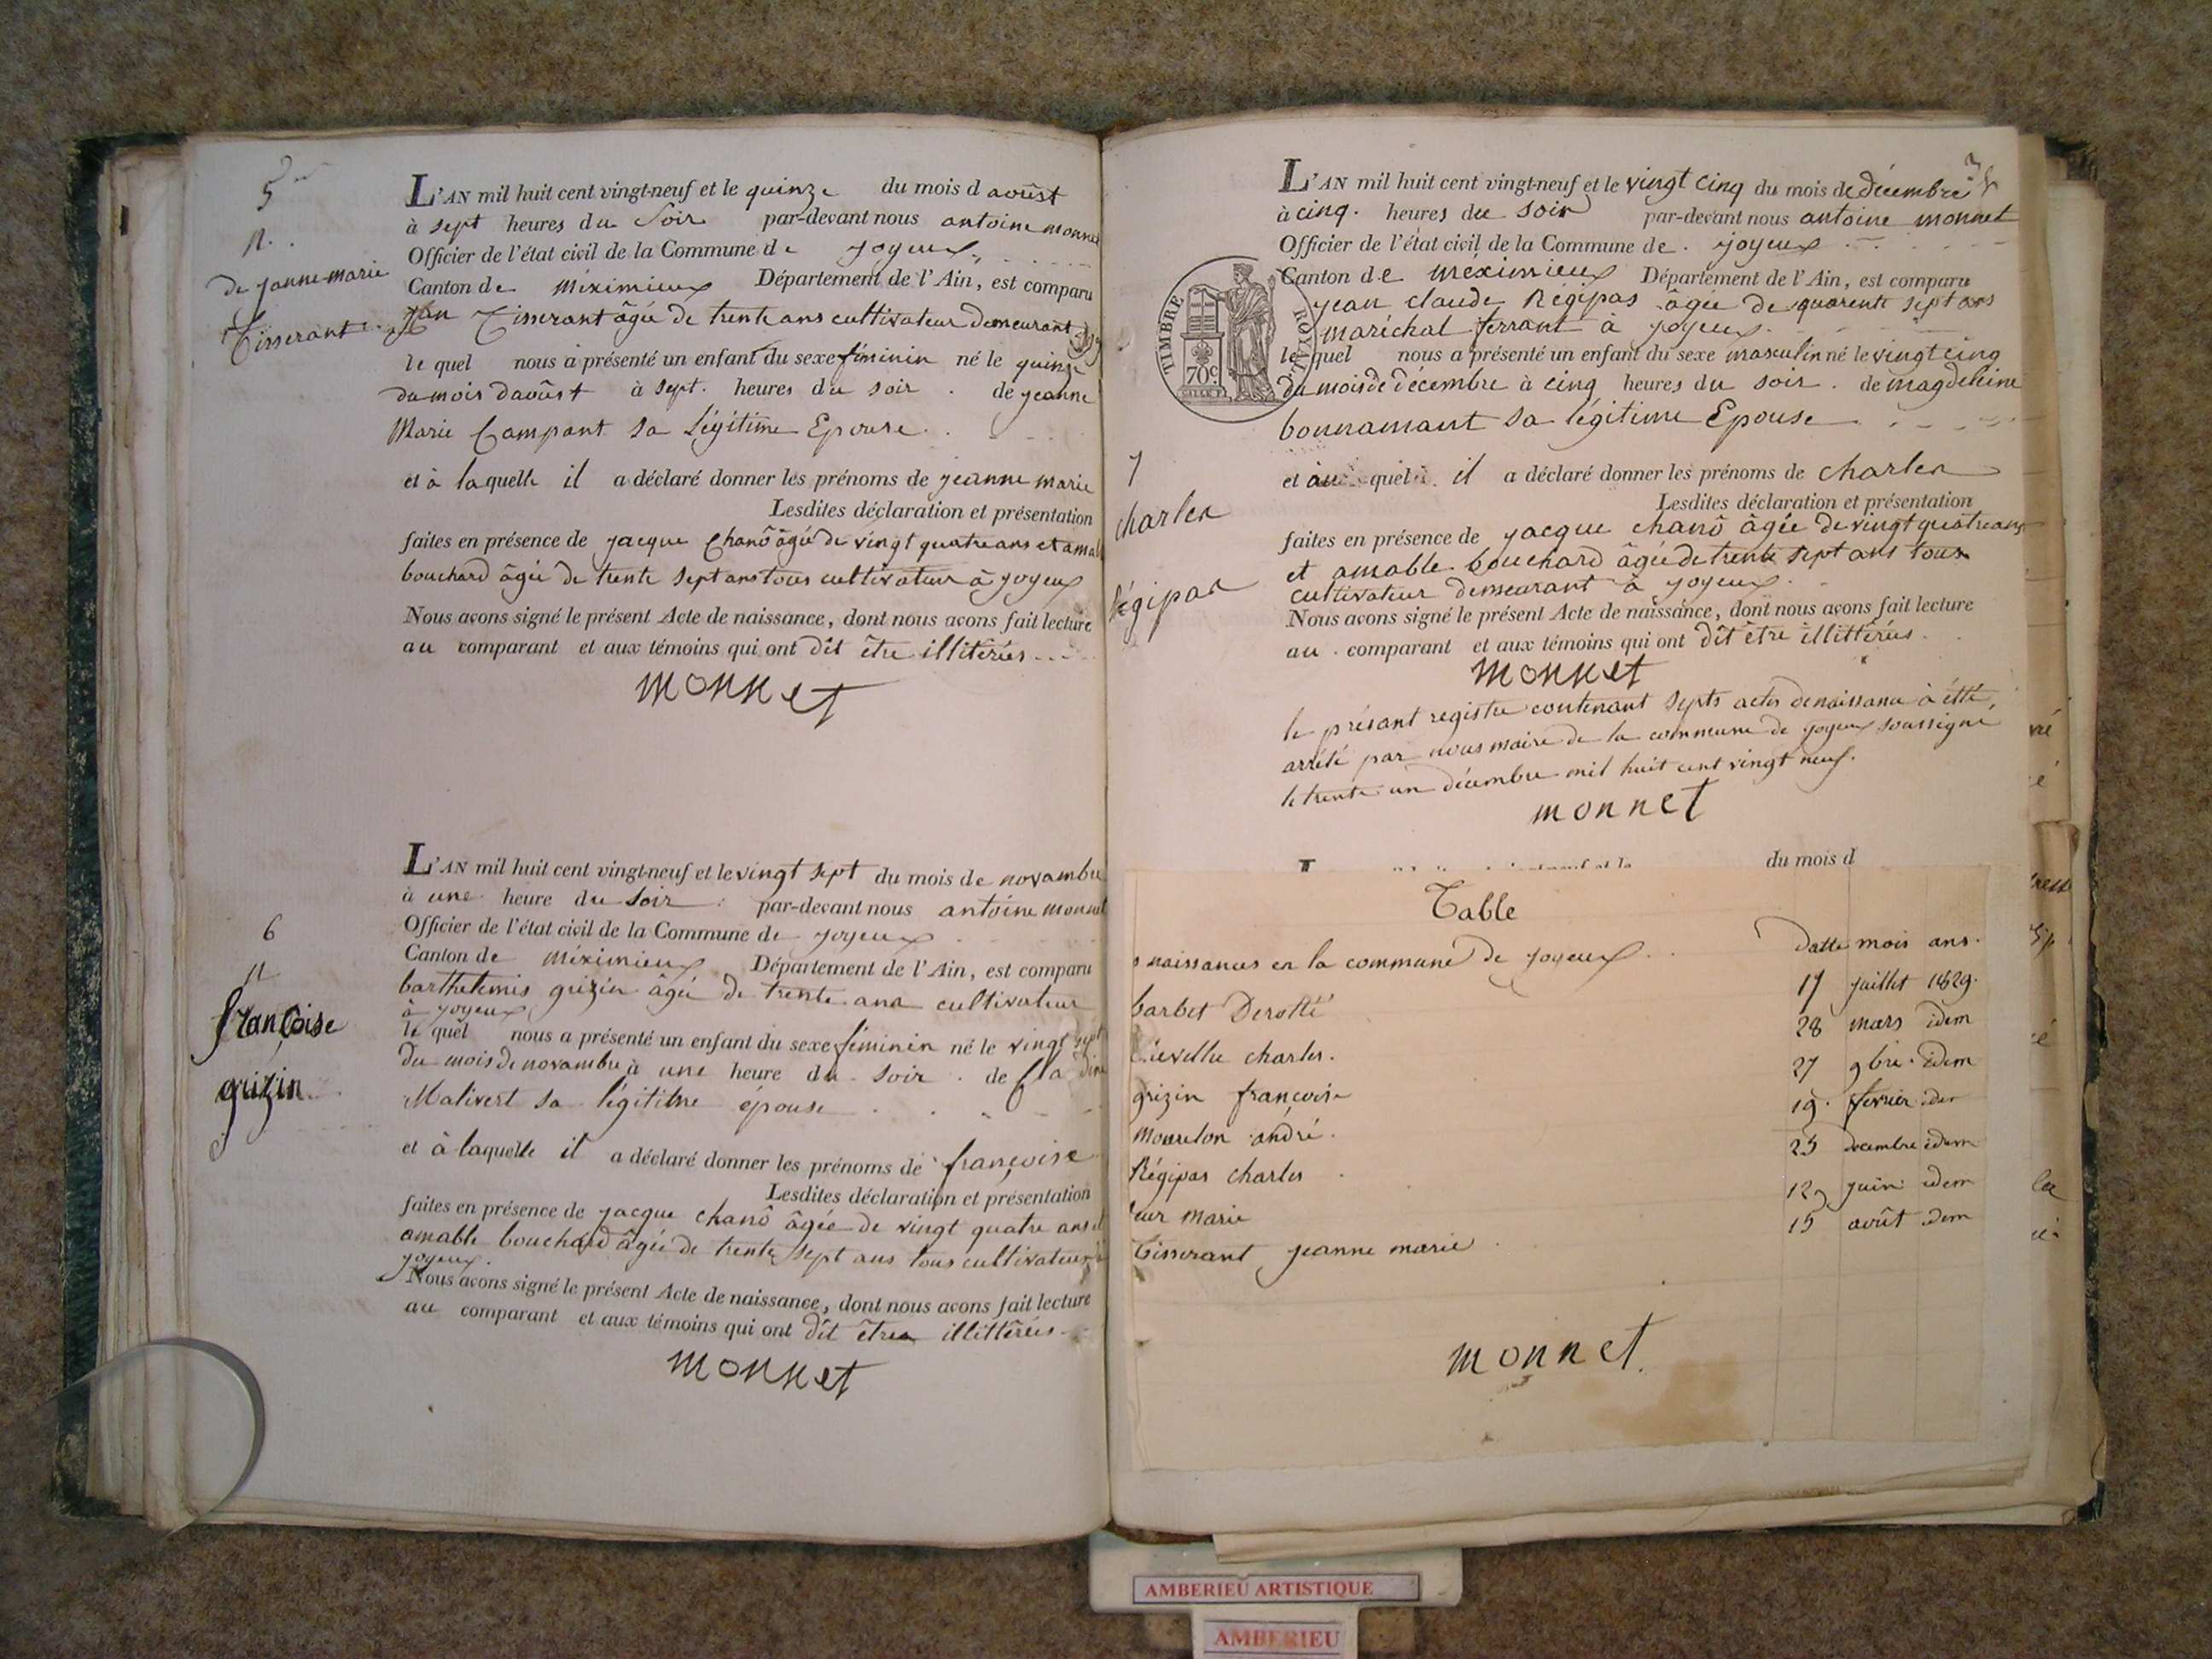 5
N.
de Jeanne marie
Tisserant
L'AN mil huit cent vingt-neuf et le quinze du mois d aoûst
à sept heures du Soir par-devant nous antoine monnet
Officier de l'état civil de la Commune de joyeux
Canton de méximieux Département de l'Ain, est comparu
jean Tisserant âgée de trente ans cultivateur demeurant
le quel nous a présenté un enfant du sexe féminin né le quinze
du mois d'aoûst à sept. heures du soir. de jeanne
Marie Campant sa Légitime Epouse.
et à laquelle il a déclaré donner les prénoms de jeanne marie
Lesdites déclaration et présentation
faites en présence de jacque Chanô âgée de vingt quatre ans et amable
bouchard âgée de trente sept ans tous cultivateur à joyeux
Nous avons signé le présent Acte de naissance, dont nous avons fait lecture
au comparant et aux témoins qui ont dît être illitérées
monnet
6
N
françoise
grizin
L'AN mil huit cent vingt-neuf et le vingt sept du mois de novambre
à une heure du soir. par-devant nous antoine monnet
Officier de l'état civil de la Commune de joyeux
Canton de méximieux Département de l'Ain, est comparu
barthelemis grizin âgée de trente ans cultivateur
à joyeux
le quel nous a présenté un enfant du sexe féminin né le vingt sept
du mois de novambre à une heure du soir. de
Malivert sa légitime épouse
et à laquelle il a déclaré donner les prénoms de françoise
Lesdites déclaration et présentation
faites en présence de jacque chanô âgée de vingt quatre ans et
amable bouchard âgée de trente sept ans tous cultivateur à
joyeux.
Nous avons signé le présent Acte de naissance, dont nous avons fait lecture
au comparant et aux témoins qui ont dît être illittérées
monnet
L'AN mil huit cent vingt-neuf et le vingt cinq du mois de décembre
à cinq. heures du soir par-devant nous antoine monnet
Officier de l'état civil de la Commune de. joyeux
Canton de méximieux Département de l'Ain, est comparu
jean claude Régipas âgée de quarente sept ans
maréchal ferrant à joyeux.
le quel nous a présenté un enfant du sexe masculin né le vingt cinq
du mois de décembre à cinq heures du soir. de magdeleine
bonnamant sa légitime Epouse
TIMBRE ROYAL
70c
7
charles
Régipas
et au quel il a déclaré donner les prénoms de charles
Lesdites déclaration et présentation
faites en présence de jacque chanô âgée de vingt quatre ans
et amable bouchard âgée de trente sept ans tous
cultivateur demeurant à joyeux.
Nous avons signé le présent Acte de naissance, dont nous avons fait lecture
au. comparant et aux témoins qui ont dît être illittérées.
monnet
le présant registre contenant septs actes de naissance à étté,
arrêté par nous maire de la commune de joyeux soussigné
le trente un décembre mil huit cent vingt neuf.
monnet
du mois d
Table
naissances en la commune de joyeux. Datte mois ans.
barbet Derotté 17 juillet 1829.
charles. 28 mars idem
grizin françoise 27 9bre. idem
mourelon andré. 19. février idem
Régipas charles 25 decembre idem
marie 12 juin idem
Tisserant jeanne marie 15 aoüt idem
monnet
AMBERIEU ARTISTIQUE
AMBERIEU